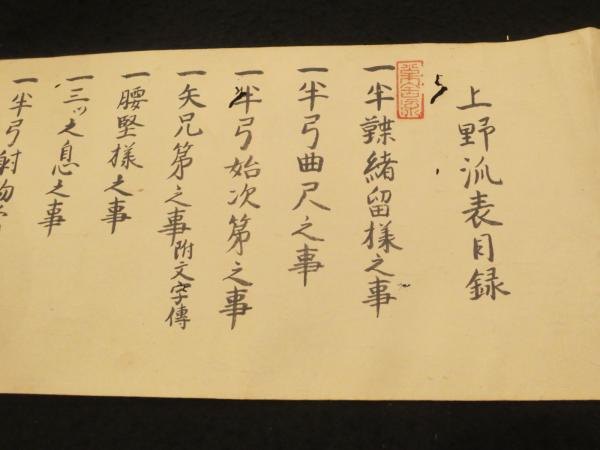 上野流表目録
一半鞢緒留様之事
一半弓曲尺之事
一半弓始次第之事
一矢兄第之事附文字傳
一腰堅様之事
一三ツ之息之事
一半弓射